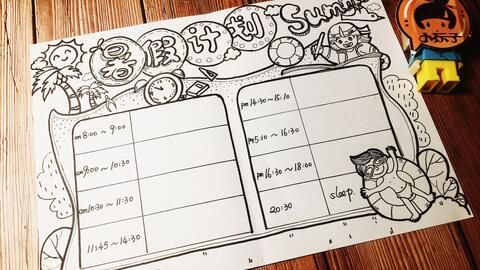 暑假计划 Sunny
am 8:00 ~ 9:00
am 9:00 ~ 10:30
am 10:30 ~ 11:30
11:45 ~ 14:30
pm 14:30 ~ 15:10
pm 15:10 ~ 16:30
pm 16:30 ~ 18:00
20:30 sleep.